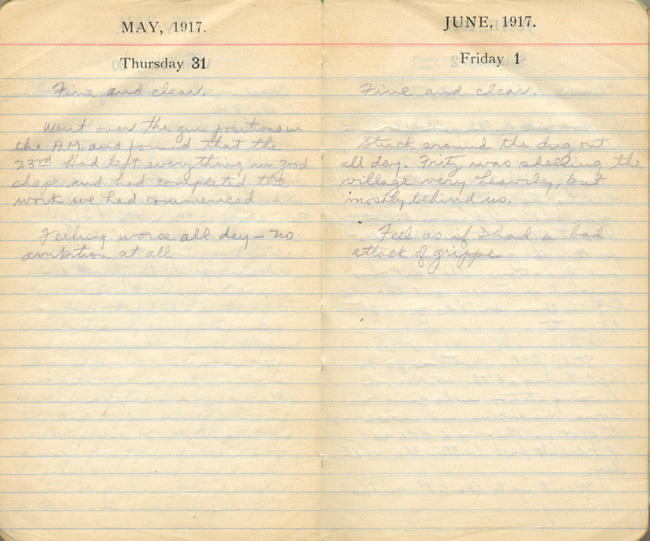 MAY, 1917.
Thursday 31
Fine and clear.
Went over the gun positions in
the A.M. and found that the
23rd had left everything in good
shape and had completed the
work we had commenced
Feeling worse all day – no
ambition at all
JUNE, 1917.
Friday 1
Fine and clear.
Stuck around the dug out
all day. Fritz was shelling the
village very heavily, but
mostly behind us.
Feel as if I had a bad
attack of grippe